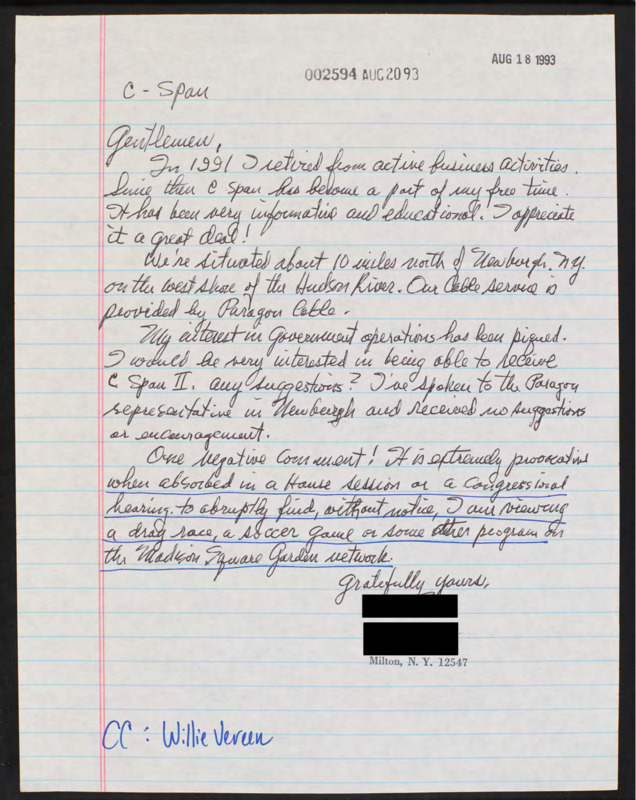 AUG 18 1993
002594 AUG2093
C - Span
Gentlemen,
In 1991 I retired from active business activities.
Since then C Span has become a part of my free time.
It has been very informative and educational. I appreciate
it a great deal!
We're situated about 10 miles north of Newburgh, N.Y.
on the west shore of the Hudson River. Our Cable service is
provided by Paragon Cable.
My interest in Government operations has been piqued.
I would be very interested in being able to receive
C Span II. any suggestions? I've spoken to the Paragon
representative in Newburgh and received no suggestions
or encouragement.
One negative comment! It is extremely provocative
when absorbed in a House session or a congressional
hearing to abruptly find, without notice, I am viewing
a drag race, a soccer game or some other program on
the Madison Square Garden network.
Gratefully yours,
Milton, N. Y. 12547
CC : Willie Vereen